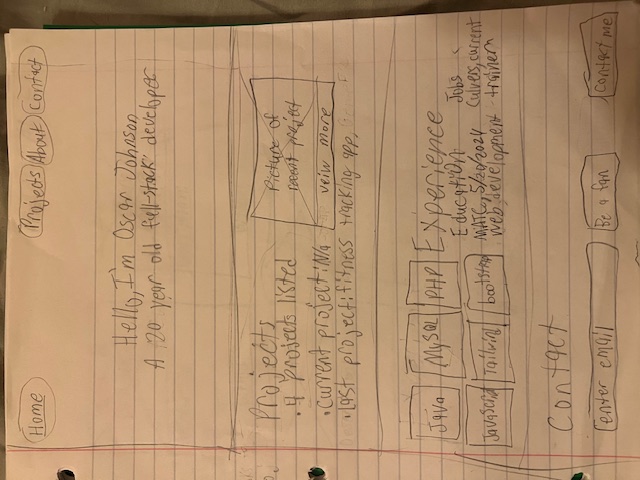 Home Projects About Contact
Hello, I'm Oscar Johnson
A 20 year old full-stack developer
Projects
• 4 projects listed
• Current project: N/A
• Last project: fitness tracking app,
Picture of
recent project
veiw more
Java MySQL PHP
JavaScript Tailwind bootstrap
Experience
Education:
MATC, 5/20/2024
web development
Jobs
Culvers, current
trainer
Contact
enter email Be a fan Contact me